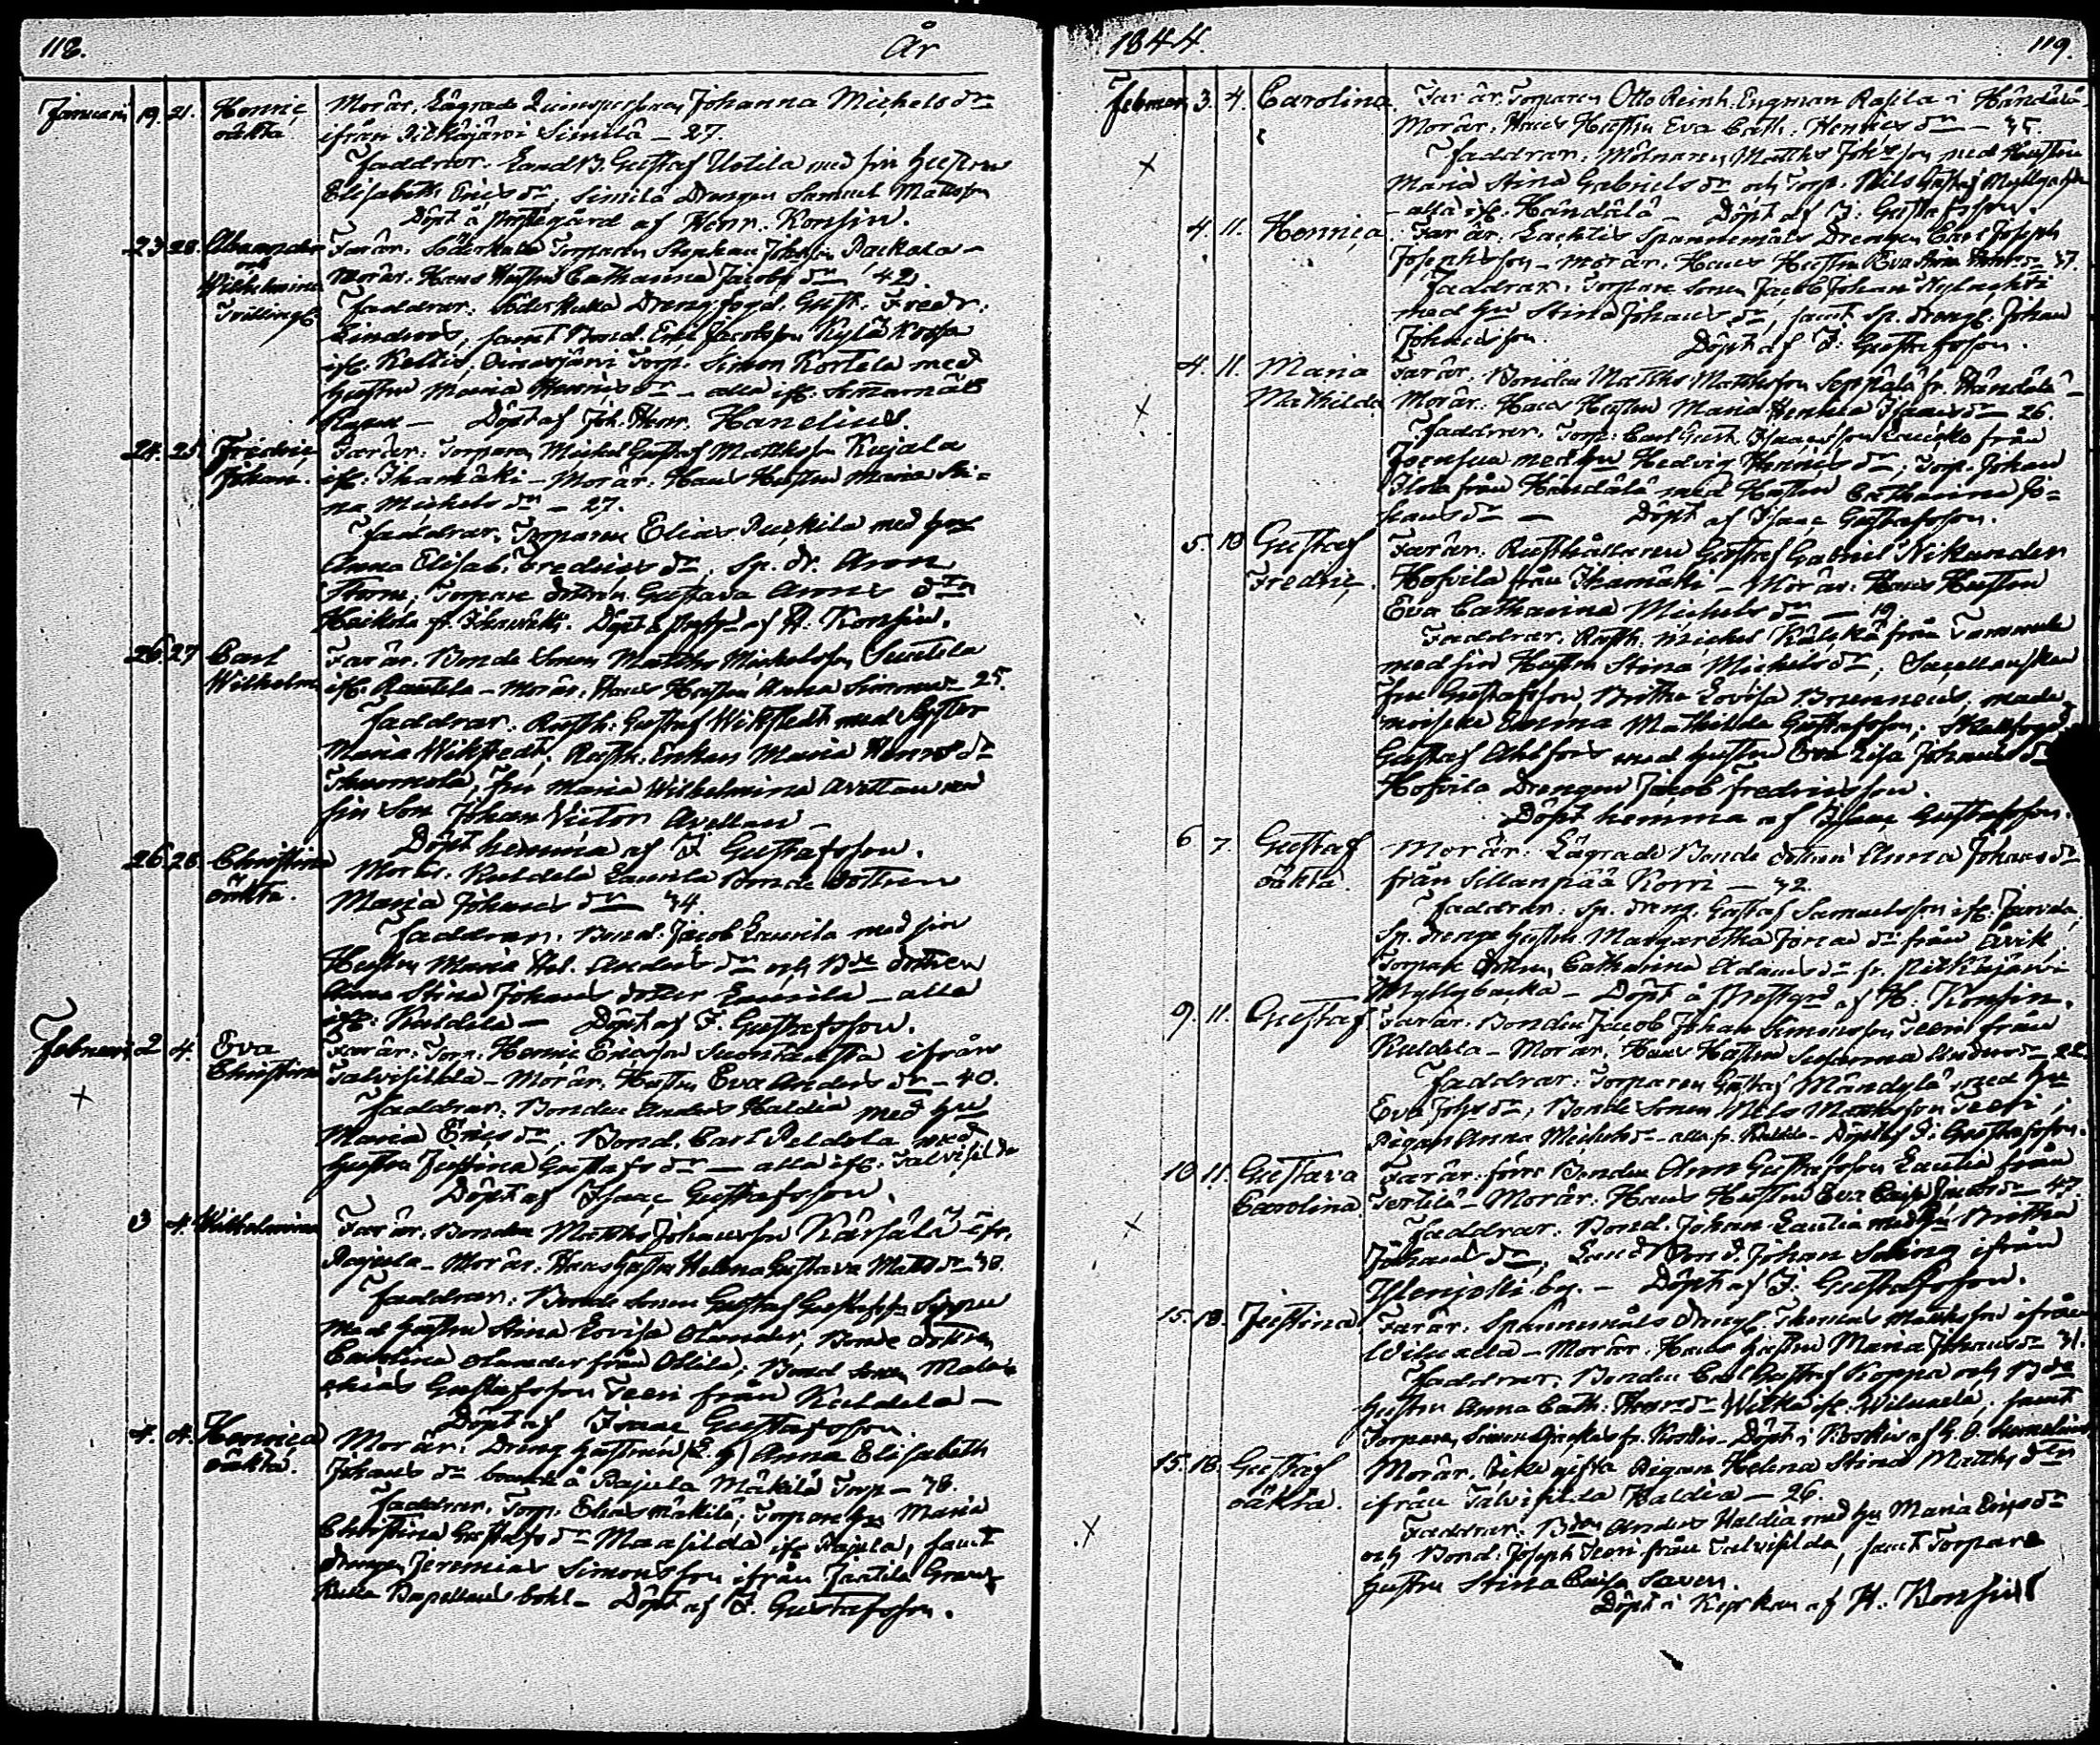 118. År
Januarii 19. 21. Henric Mor är, Lägrade Qvinspersonen Johanna Michels dr
oäkta ifrån Pitkäjärvi Similä – 27.
Faddrar. Gustaf Uotila med sin hustru
Elisabeth Erics dr, Similä Drengen Samuel Mattsson
Döpt å Prestegård af Henr. Konsin.
23. 28. Alexander Far är, Söderkulla Torparen Stephan Johansson Packala –
och Mor är. Hans Hustru Catharina Jacobs dr 42.
Wilhelmina Faddrar. Söderkulla Drengfogd. Gust. Fredr.
Tvillingar Lindroos, samt Bond. Eric Jacobsson Kylä
Torp. Simon Kortela med
hustru Maria Henrics dr – alla ifr. Somarnäs
Döpt af Joh. Henr. Hanelius.
24. 25. Fredric Far är: Torparen Michel Gustaf Mattsson Kujala
Johan. ifr. Ihamäki – Mor är. Hans Hustru Maria Sti=
na Michels dr – 27.
Faddrar. Torparen Elias med hus
Anna Elisab. Fredrics dr, sp. dr. Aron
Storm, Torpare dottren Gustava Arons dr
Heikola fr. Ihamäki. Döpt af H. Konsin.
26. 27. Carl Far är. Bonde Sonen Matths Michelsson Suutela
Wilhelm ifr. Rautela – Mor är. Hans Hustru Anna Simons dr 25.
Faddrar: Rusth. Gustaf Wikstedt med Syster
Maria Wikstedt, Rusth. Enkan Maria Henrics dr
Thuomola, fru Maria Wilhelmina Avellan med
sin Son Johan Victor Avellan –
Döpt hemma af I. Gustafsson.
26. 28. Christina Mor är. Kuldela Laurila Bonde dottren
oäkta. Maria Johans dr 34.
Faddrar. Bond. Jacob Laurila med sin
Hustru Maria Hel. Anders dr och Bde dottren
Stina Johans dotter Laurila – alla
ifr. Kuldela – Döpt af I. Gustafsson.
Februarii 2 4. Eva Far är. Torp. Henric Ericsson Suontausta ifrån
Christina Talvisilda – Mor är. Hustru Eva Anders dr – 40.
× Faddrar. Bonden Anders Haldia med hu
Maria Erics dr, Bond. Carl Peldola med
hustru Justina Gustafs dr – alla ifr. Talvisilda
Döpt af Isaac Gustafsson.
3 4. Wilhelmina Far är. Bonden Matths Johansson Kärsälä ifr.
Rajula – Mor är. Hans Hustru Helena Gustava Matts dr 30.
Faddrar: Bonde Sonen Gustaf Gustafsson
med hustru Stina Lovisa Olander, Bonde dottren
Carolina Olander från Ollila; Bond Sonen Mala=
chias Gustafsson Teeri från Kuldela –
Döpt af Isaac Gustafsson.
4. 4. Henrica Mor är: Dreng hustrun (E. G) Anna Elisabeth
oäkta. Johans dr å Rajula Mäkilä Torp – 38.
Faddrar. Torp. Elias Mäkilä; Torpare hu Maria
Christina Gustafs dr Maasilda ifr Rajula, samt
drengen Jeremias Simonsson ifrån Jactila
Kulla Kapellans bohl – Döpt af I. Gustafsson.
1844. 119.
Februarii 3. 4. Carolina. Far är. Torparen Otto Reinh. Engman Rasila i Händälä –
Mor är. Hans Hustru Eva Cath. Henrics dr – 35.
× Faddrar: Mölnaren Matths Johsson med Hustru
Maria Stina Gabriels dr och Torp. Nils Gustaf
– alla ifr. Händälä – Döpt af I. Gustafsson.
4. 11. Henrica. Far är. Spannemåls Drengen Carl Joseph
Josephsson – Mor är. Hans Hustru Eva 37.
Faddrar. Torpare Sonen Jacob Johan
med hu Stina Johans dr, samt Sp. dreng. Johan
Johansson. Döpt af I. Gustafsson.
4. 11. Maria Far är. Bonden Matths Matthsson Seppälä fr. Händälä –
× Mathilda Mor är. Hans Hustru Maria Henrica Isaacs dr 26.
Faddrar. Torp. Carl Gust. Isaacsson från
Joensuu med hu Hedvig Henrics dr, Torp. Johan
från Händälä med Hustru Catharina Jo=
hans dr – Döpt af Isaac Gustafsson.
5. 10 Gustaf Far är: Rusthållaren Gustaf Gabriel Nikander
Fredric. Hofvila från Ihamäki – Mor är. Hans Hustru
Eva Catharina Michels dr – 19.
Faddrar. Rusth. Michel från Tammela
med sin Hustru Stina Michels dr; Sacellanskan
fru Gustafsson, Britha Lovisa Brunneus, made=
moiselle Emma Mathilda Gustafsson, Stallfogd
Gustaf Ahlfors med hustru Eva Lisa Johans dr
Hofvila Drengen Jacob Fredricsson.
Döpt hemma af Isaac Gustafsson.
6 7. Gustaf Mor är. Lägrade Bonde dottren Anna Johans dr
oäkta. från Sillanpää Korri – 32.
Faddrar. Sp. dreng. Gustaf Samuelsson ifr.
Sp. drenge hustru Margaretha Jonas dr från Åvik
Torpare dottren Catharina Adams dr fr. Pitkäjärvi
Myllybacka – Döpt å Prestgrd af H. Konsin.
9. 11. Gustaf Far är. Bonden Jacob Johan Simonsson Teeri från
Kuldela – Mor är. Hans Hustru Susanna Anders dr 22.
Faddrar: Torparen Gustaf Mändylä med hu
Eva Johs dr; Bonde Sonen Nils Mattsson Teeri,
Pigan Anna Michels dr – alla fr. Kuldela – Döpt af I. Gustafsson.
10 11. Gustava Far är. förre Bonden Aron Gustafsson Lautia från
Carolina. Tertilä – Mor är. Hans Hustru Eva Caisa Jacobs dr – 47.
× Faddrar. Bond. Johan Lautia med hu Britha
Johans dr, Bond. Johan Seling ifrån
Ylenjoki by. – Döpt af I. Gustafsson.
15. 18. Justina Far är. Spannemåls Dreng. Thomas Matthsson ifrån
Wiluxela – Mor är. Hans hustru Maria Johans dr 31.
Faddrar. Bonden Carl Gustaf Koppa och Bde
hustru Anna Cath. Henrs dr Witka ifr. Wiluxela, samt
Torparen Simon fr. Koskis – Döpt i Koskis af
15. 18. Gustaf Mor är. Icke gifta Pigan Helena Stina Matths dr
oäkta. ifrån Talvisilda Haldia – 26.
.× Faddrar: Bden Anders Haldia med hu Maria Erics dr
och Bond. Joseph Teeri från Talvisilda, samt Torpare
hustru Stina Caisa Saven.
Döpt i Kyrkan af H. Konsin